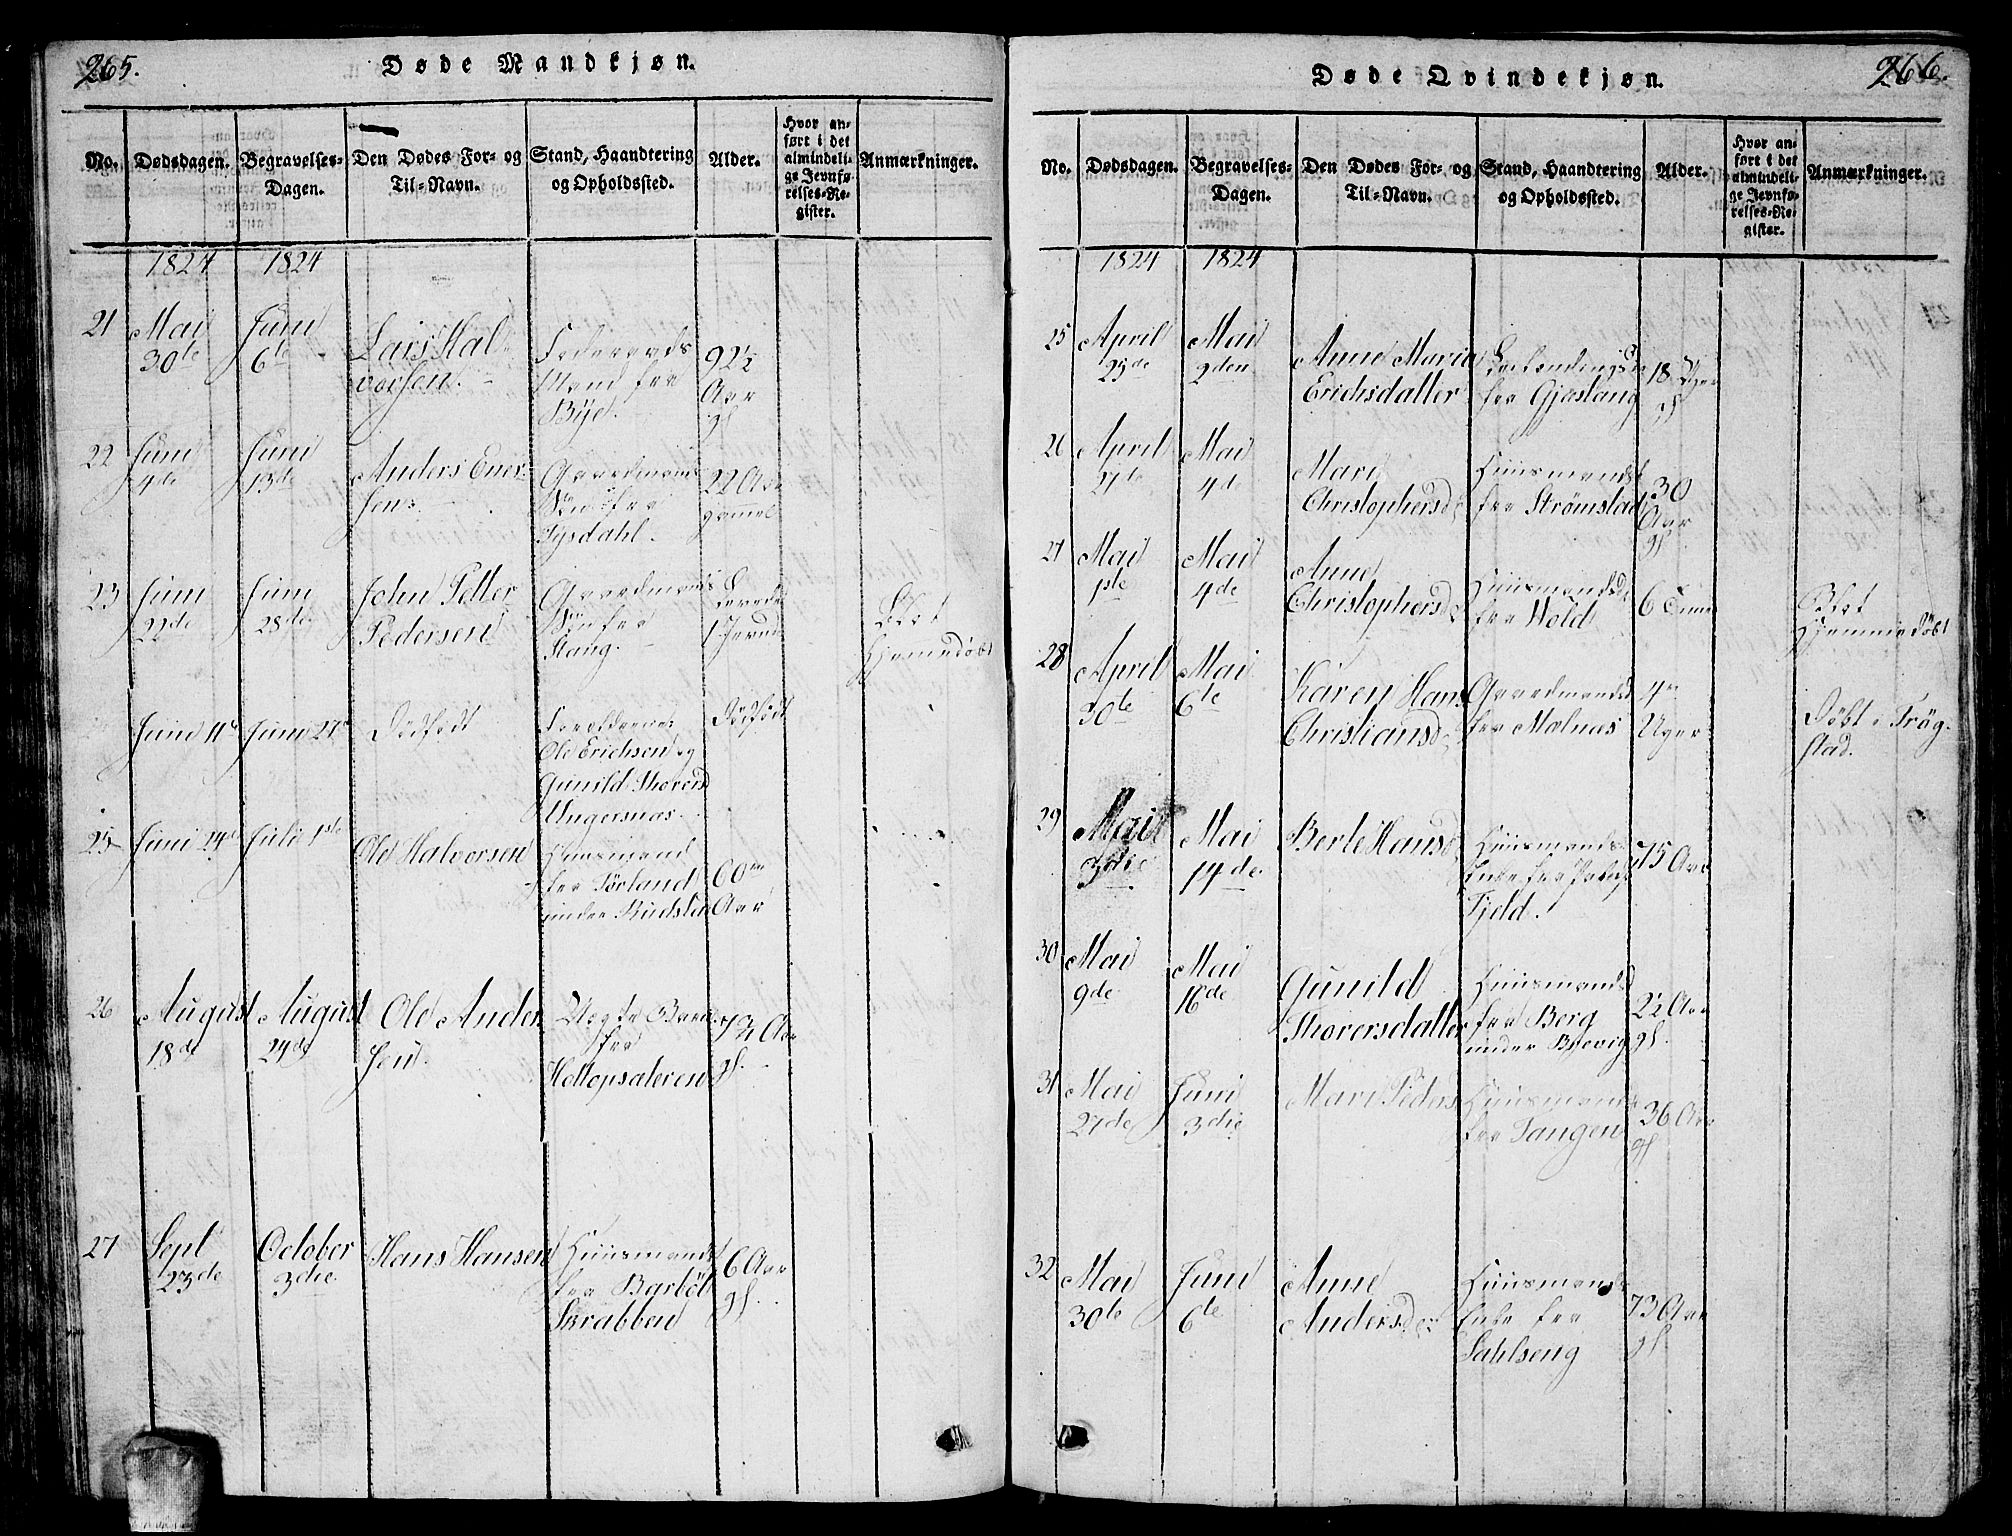 265.
Døde Mandkjøn.
No.
Dødsdagen.
Begravelses-
Dagen.
Den Dødes For- og
Til-Navn.
Stand, Haandtering
og Opholdssted.
Alder.
Hvor an-
ført i det
almindeli-
ge Jevnfø-
relses-Re-
gister.
Anmærkninger.
1824 1824
21 Mai
30te
Juni
6te
Lars Hal
vorsen.
Mand fra
Bye.
92½
Aar
gl
22 Juni
4de
Juni
13de
Anders Ener
sen.
Gaardmands
Søn fra
Tysdahl.
22 Aar
gamel
23 Juni
22de
Juni
28de
John Petter
Pedersen
Gaardmands
Søn fra
Stang.
Blot
Hjemmedøbt
Juni 11te Juni 21de Dødfødt
Forældrene
Ole Erichsen og
Gunild Thorersd
Ungersnæs.
Dødfødt
25 Juni 24de Juli 1ste Ole Halvorsen
Huusmand
fra Törland
under Rudsland
60
Aar
26 August
18de
August
24de
Ole Ander
sen.
Uægte Barn
fra
Holtopsateren
gl.
27 Sept
23de
October
3die
Hans Hansen
Huusmands
fra Barböl
Skrabben
6 Aar
gl.
266.
Døde Qvindekjøn.
No.
Dødsdagen.
Begravelses-
Dagen.
Den Dødes For- og
Til-Navn.
Stand, Haandtering
og Opholdssted.
Alder.
Hvor an-
ført i det
almindeli-
ge Jevnfø-
relses-Re-
gister.
Anmærkninger.
1824 1824
25 April
25de
Mai
2den
Anne Maria
Erichsdatter
fra Gjøslang
18 Uger
gl
26 April
27de
Mai
4de
Mari
Christophersd
Huusmands
fra Strømstad
30
Aar
gl
27 Mai
1ste
Mai
4de
Anne
Christophersd
Huusmandsd
fra Wold
6
Blot
Hjemmedøbt
28 April
30te
Mai
6te
Karen Hans
Christiansd
Gaardmandsd
fra Molnæs
4re
Uger
Døbt i Trög-
stad.
29 Mai
3die
Mai
14de
Berte Hansd
Huusmands
Enke fra
Fjeld.
75 Aar
30 Mai
9de
Mai
16de
Gunild
Thorersdatter
Huusmandsd
fra Berg
under
2½ Aar
gl.
31 Mai
27de
Juni
3die
Mari Peders
Huusmands
fra Tangen
36 Aar
gl
32 Mai
30te
Juni
6te
Anne
Andersd
Huusmands
Enke fra
Sahlseng
73 Aar
gl